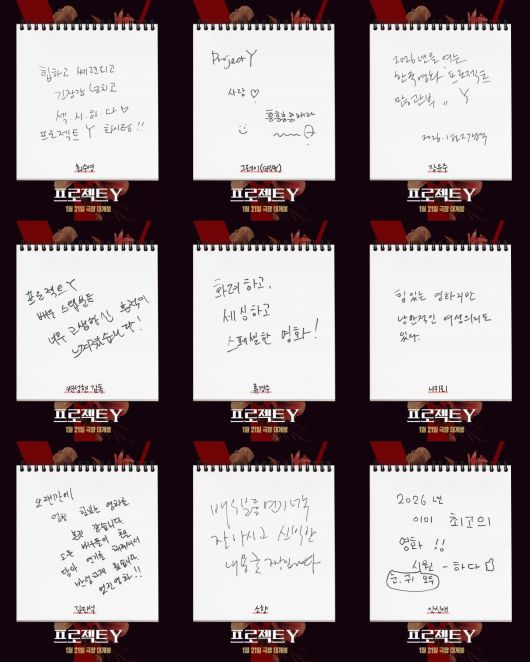 힙하고 쎄련되고
긴장감 넘치고
섹.시.하.다♡
프로젝트 Y 화이팅!!
최수영
프로젝트Y
1월 21일 극장 대개봉
Project Y
사랑♡
흥흥흥흥해라
그레이(GRAY)
프로젝트Y
1월 21일 극장 대개봉
2026년을 여는
한국영화 프로젝트
많관부 〃 Y
2026. 1
장윤주
프로젝트Y
1월 21일 극장 대개봉
프로젝트Y
배우 스탭분들
너무 고생하신 흔적이
느껴졌습니다!
변성현 감독
프로젝트Y
1월 21일 극장 대개봉
화려하고,
쎄싱하고
스페셜한 영화!
류경수
프로젝트Y
1월 21일 극장 대개봉
힘있는 영화지만
낭만적인 여성의리도
있다.
니키리
프로젝트Y
1월 21일 극장 대개봉
오랜만에
힘있는 영화를
본것 같습니다.
모든 배우들이
연기를 해줘서
멋진영화!!
김민석
프로젝트Y
1월 21일 극장 대개봉
배우분들 연기력
장난아니시고 신박한
내용굿 짱입니다
소향
프로젝트Y
1월 21일 극장 대개봉
2026년
이미 최고의
영화 !!
시원-하다
눈, 귀 모두
안신애
프로젝트Y
1월 21일 극장 대개봉